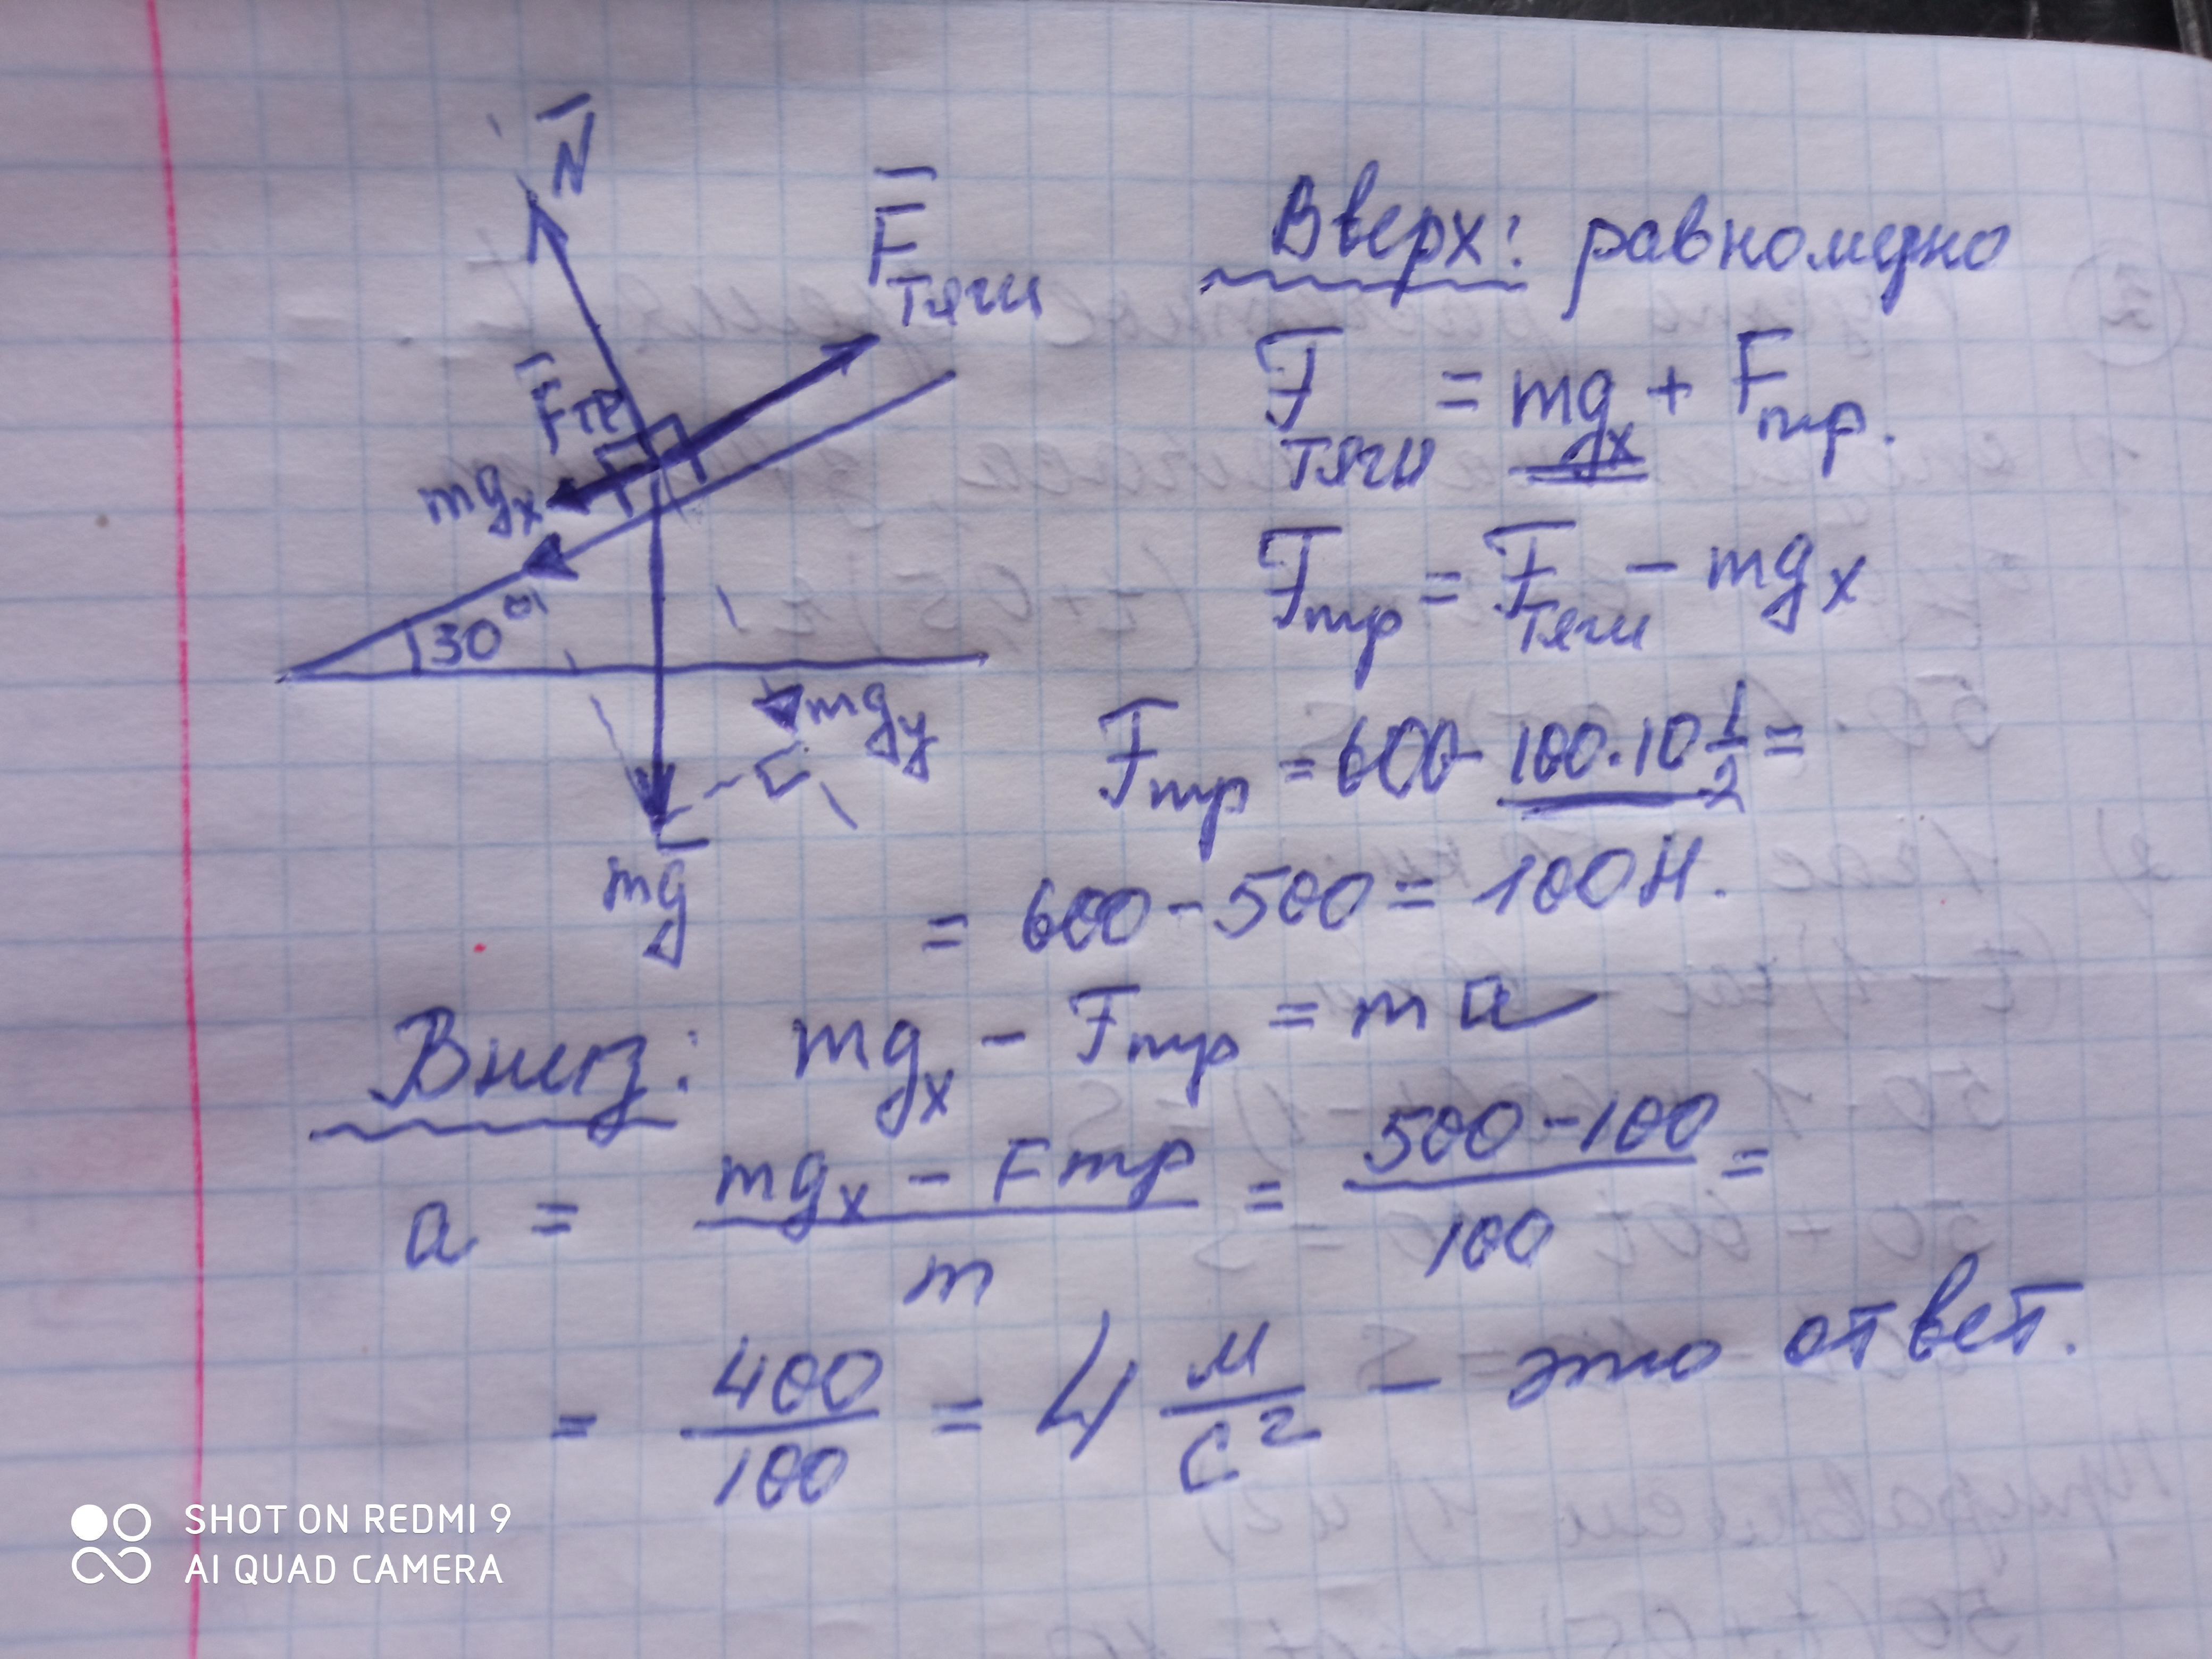 N
F тяги
Fтр
mgx
30°
mgy
mg
Вверх: равномерно
F тяги = mgx + Fтр.
Fтр = Fтяги - mgx
Fтр = 600 - 100·10 1/2 =
= 600 - 500 = 100 Н.
Вниз: mgx - Fтр = ma
a = (mgx - Fтр)/m = (500 - 100)/100 =
= 400/100 = 4 м/с² - это ответ.
SHOT ON REDMI 9
AI QUAD CAMERA